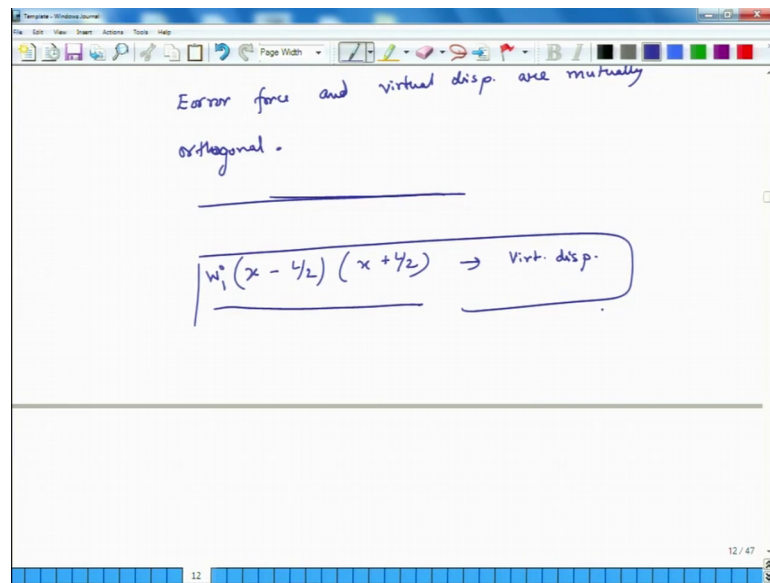 Template - Windows Journal
File Edit View Insert Actions Tools Help
Page Width
B I
Eorror force and virtual disp. are mutually
orthogonal.
W₁° (x - L/2) (x + L/2) → Virt. disp.
12 / 47
12